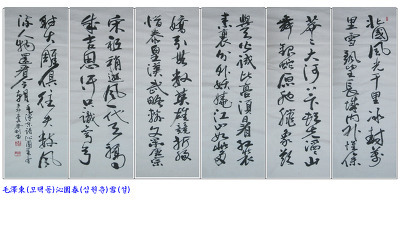 北國風光千里冰封萬
里雪飄望長城內外惟餘
莽々大河上下頓失滔々山
舞銀蛇原馳蠟象欲
與天公試比高須晴日看紅裝
素裹分外妖嬈江山如此多
嬌引無數英雄競折腰
惜秦皇漢武略輸文采唐宗
宋祖稍遜風騷一代天驕
成吉思汗只識彎弓
射大雕俱往矣數風
流人物還看今朝
毛澤東(모택동)沁園春(심원춘)雪(설)